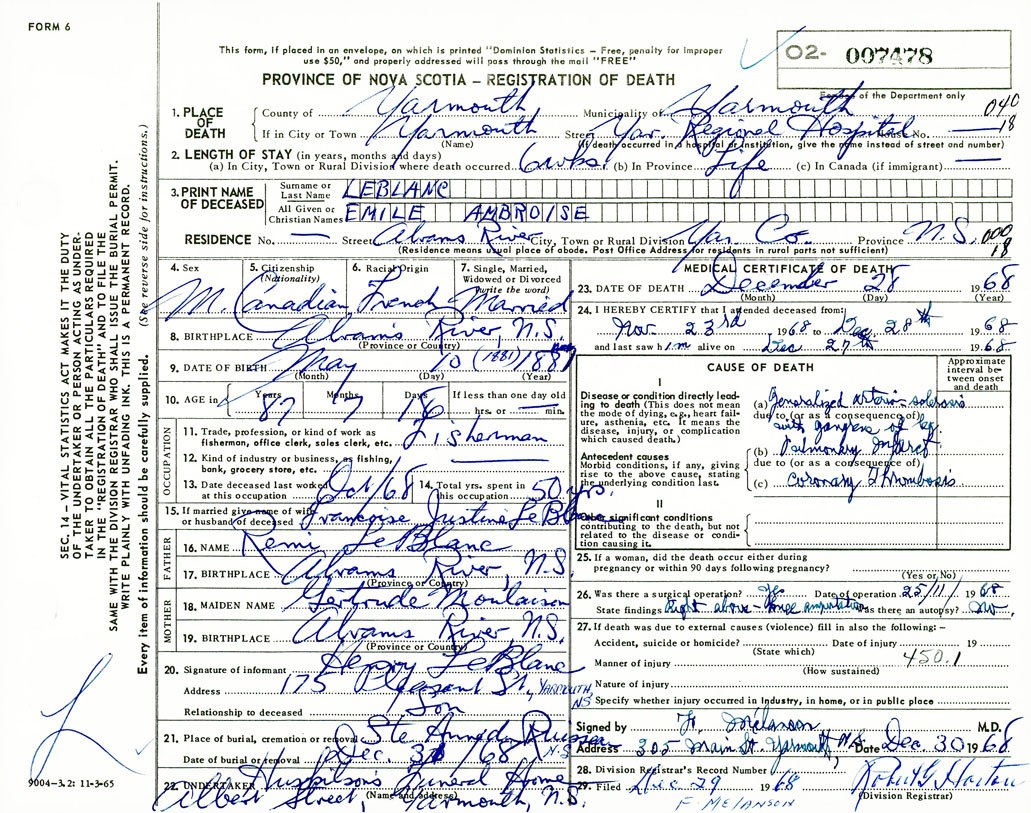 FORM 6
This form, if placed in an envelope, on which is printed "Dominion Statistics – Free, penalty for improper
use $50," and properly addressed will pass through the mail "FREE"
02- 007478
PROVINCE OF NOVA SCOTIA – REGISTRATION OF DEATH
For use of the Department only
1. PLACE OF DEATH
County of Yarmouth Municipality of Yarmouth 040
If in City or Town Yarmouth Street Yar. Regional Hospital House No. — 18
(Name) (If death occurred in a hospital or institution, give the name instead of street and number)
2. LENGTH OF STAY (in years, months and days)
(a) In City, Town or Rural Division where death occurred 6 wks. (b) In Province Life (c) In Canada (if immigrant) —
3. PRINT NAME OF DECEASED
Surname or Last Name LEBLANC
All Given or Christian Names EMILE AMBROISE
RESIDENCE No. — Street Alvans River City, Town or Rural Division Yar. Co. Province N.S. 000
(Residence means usual place of abode. Post Office Address for residents in rural parts not sufficient) 18
4. Sex M.
5. Citizenship (Nationality) Canadian
6. Racial Origin French
7. Single, Married, Widowed or Divorced (write the word) Married
8. BIRTHPLACE Alvans River, N.S.
(Province or Country)
9. DATE OF BIRTH May 10 (1881) 1881
(Month) (Day) (Year)
10. AGE in Years 87 Months 7 Days 18 If less than one day old
hrs. or — min.
OCCUPATION
11. Trade, profession, or kind of work as fisherman, office clerk, sales clerk, etc. Fisherman
12. Kind of industry or business, as fishing, bank, grocery store, etc. —
13. Date deceased last worked at this occupation Oct/68 14. Total yrs. spent in this occupation 50 yrs.
15. If married give name of wife or husband of deceased Francoise Justine LeBlanc
FATHER
16. NAME Remi LeBlanc
17. BIRTHPLACE Alvans River, N.S.
(Province or Country)
MOTHER
18. MAIDEN NAME Gertrude Moulaison
19. BIRTHPLACE Alvans River, N.S.
(Province or Country)
20. Signature of informant Henry LeBlanc
Address 175 Pleasant St., YARMOUTH, NS
Relationship to deceased Son
21. Place of burial, cremation or removal Ste Anne du Ruisseau N.S.
Date of burial or removal Dec. 30/68
22. UNDERTAKER Huskilson's Funeral Home
Albert Street, Yarmouth, N.S.
(Name and address)
MEDICAL CERTIFICATE OF DEATH
23. DATE OF DEATH December 28 1968
(Month) (Day) (Year)
24. I HEREBY CERTIFY that I attended deceased from:
Nov. 23rd, 1968 to Dec. 28th 1968
and last saw him alive on Dec 27th 1968
CAUSE OF DEATH
Approximate interval between onset and death
I
Disease or condition directly leading to death (This does not mean the mode of dying, e.g., heart failure, asthenia, etc. It means the disease, injury, or complication which caused death.)
(a) Generalized arterio-sclerosis
due to (or as a consequence of)
with gangrene of leg.
Antecedent causes
Morbid conditions, if any, giving rise to the above cause, stating the underlying condition last.
(b) Pulmonary Infarct
due to (or as a consequence of)
(c) Coronary Thrombosis
II
Other significant conditions contributing to the death, but not related to the disease or condition causing it.
25. If a woman, did the death occur either during
pregnancy or within 90 days following pregnancy?
(Yes or No)
26. Was there a surgical operation? Yes Date of operation 25/11/ 1968
State findings Right above-knee amputation Was there an autopsy? No.
27. If death was due to external causes (violence) fill in also the following: –
Accident, suicide or homicide? Date of injury 19
(State which) 450.1
Manner of injury
(How sustained)
Nature of injury
Specify whether injury occurred in industry, in home, or in public place
Signed by F. Melanson M.D.
Address 305 Main St. Yarmouth, N.S. Date Dec. 30 1968
28. Division Registrar's Record Number
29. Filed Dec. 29 1968 Robert G Horton
(Division Registrar)
F. MELANSON
SEC. 14 – VITAL STATISTICS ACT MAKES IT THE DUTY
OF THE UNDERTAKER OR PERSON ACTING AS UNDERTAKER
TO OBTAIN ALL THE PARTICULARS REQUIRED
IN THE "REGISTRATION OF DEATH" AND TO FILE THE
SAME WITH THE DIVISION REGISTRAR WHO SHALL ISSUE THE BURIAL PERMIT.
WRITE PLAINLY WITH UNFADING INK. THIS IS A PERMANENT RECORD.
Every item of information should be carefully supplied. (See reverse side for instructions.)
9004–3.2: 11-3-65